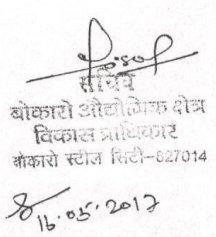 सचिव
बोकारो औद्योगिक क्षेत्र
विकास प्राधिकार
बोकारो स्टील सिटी-827014
16.05.2017